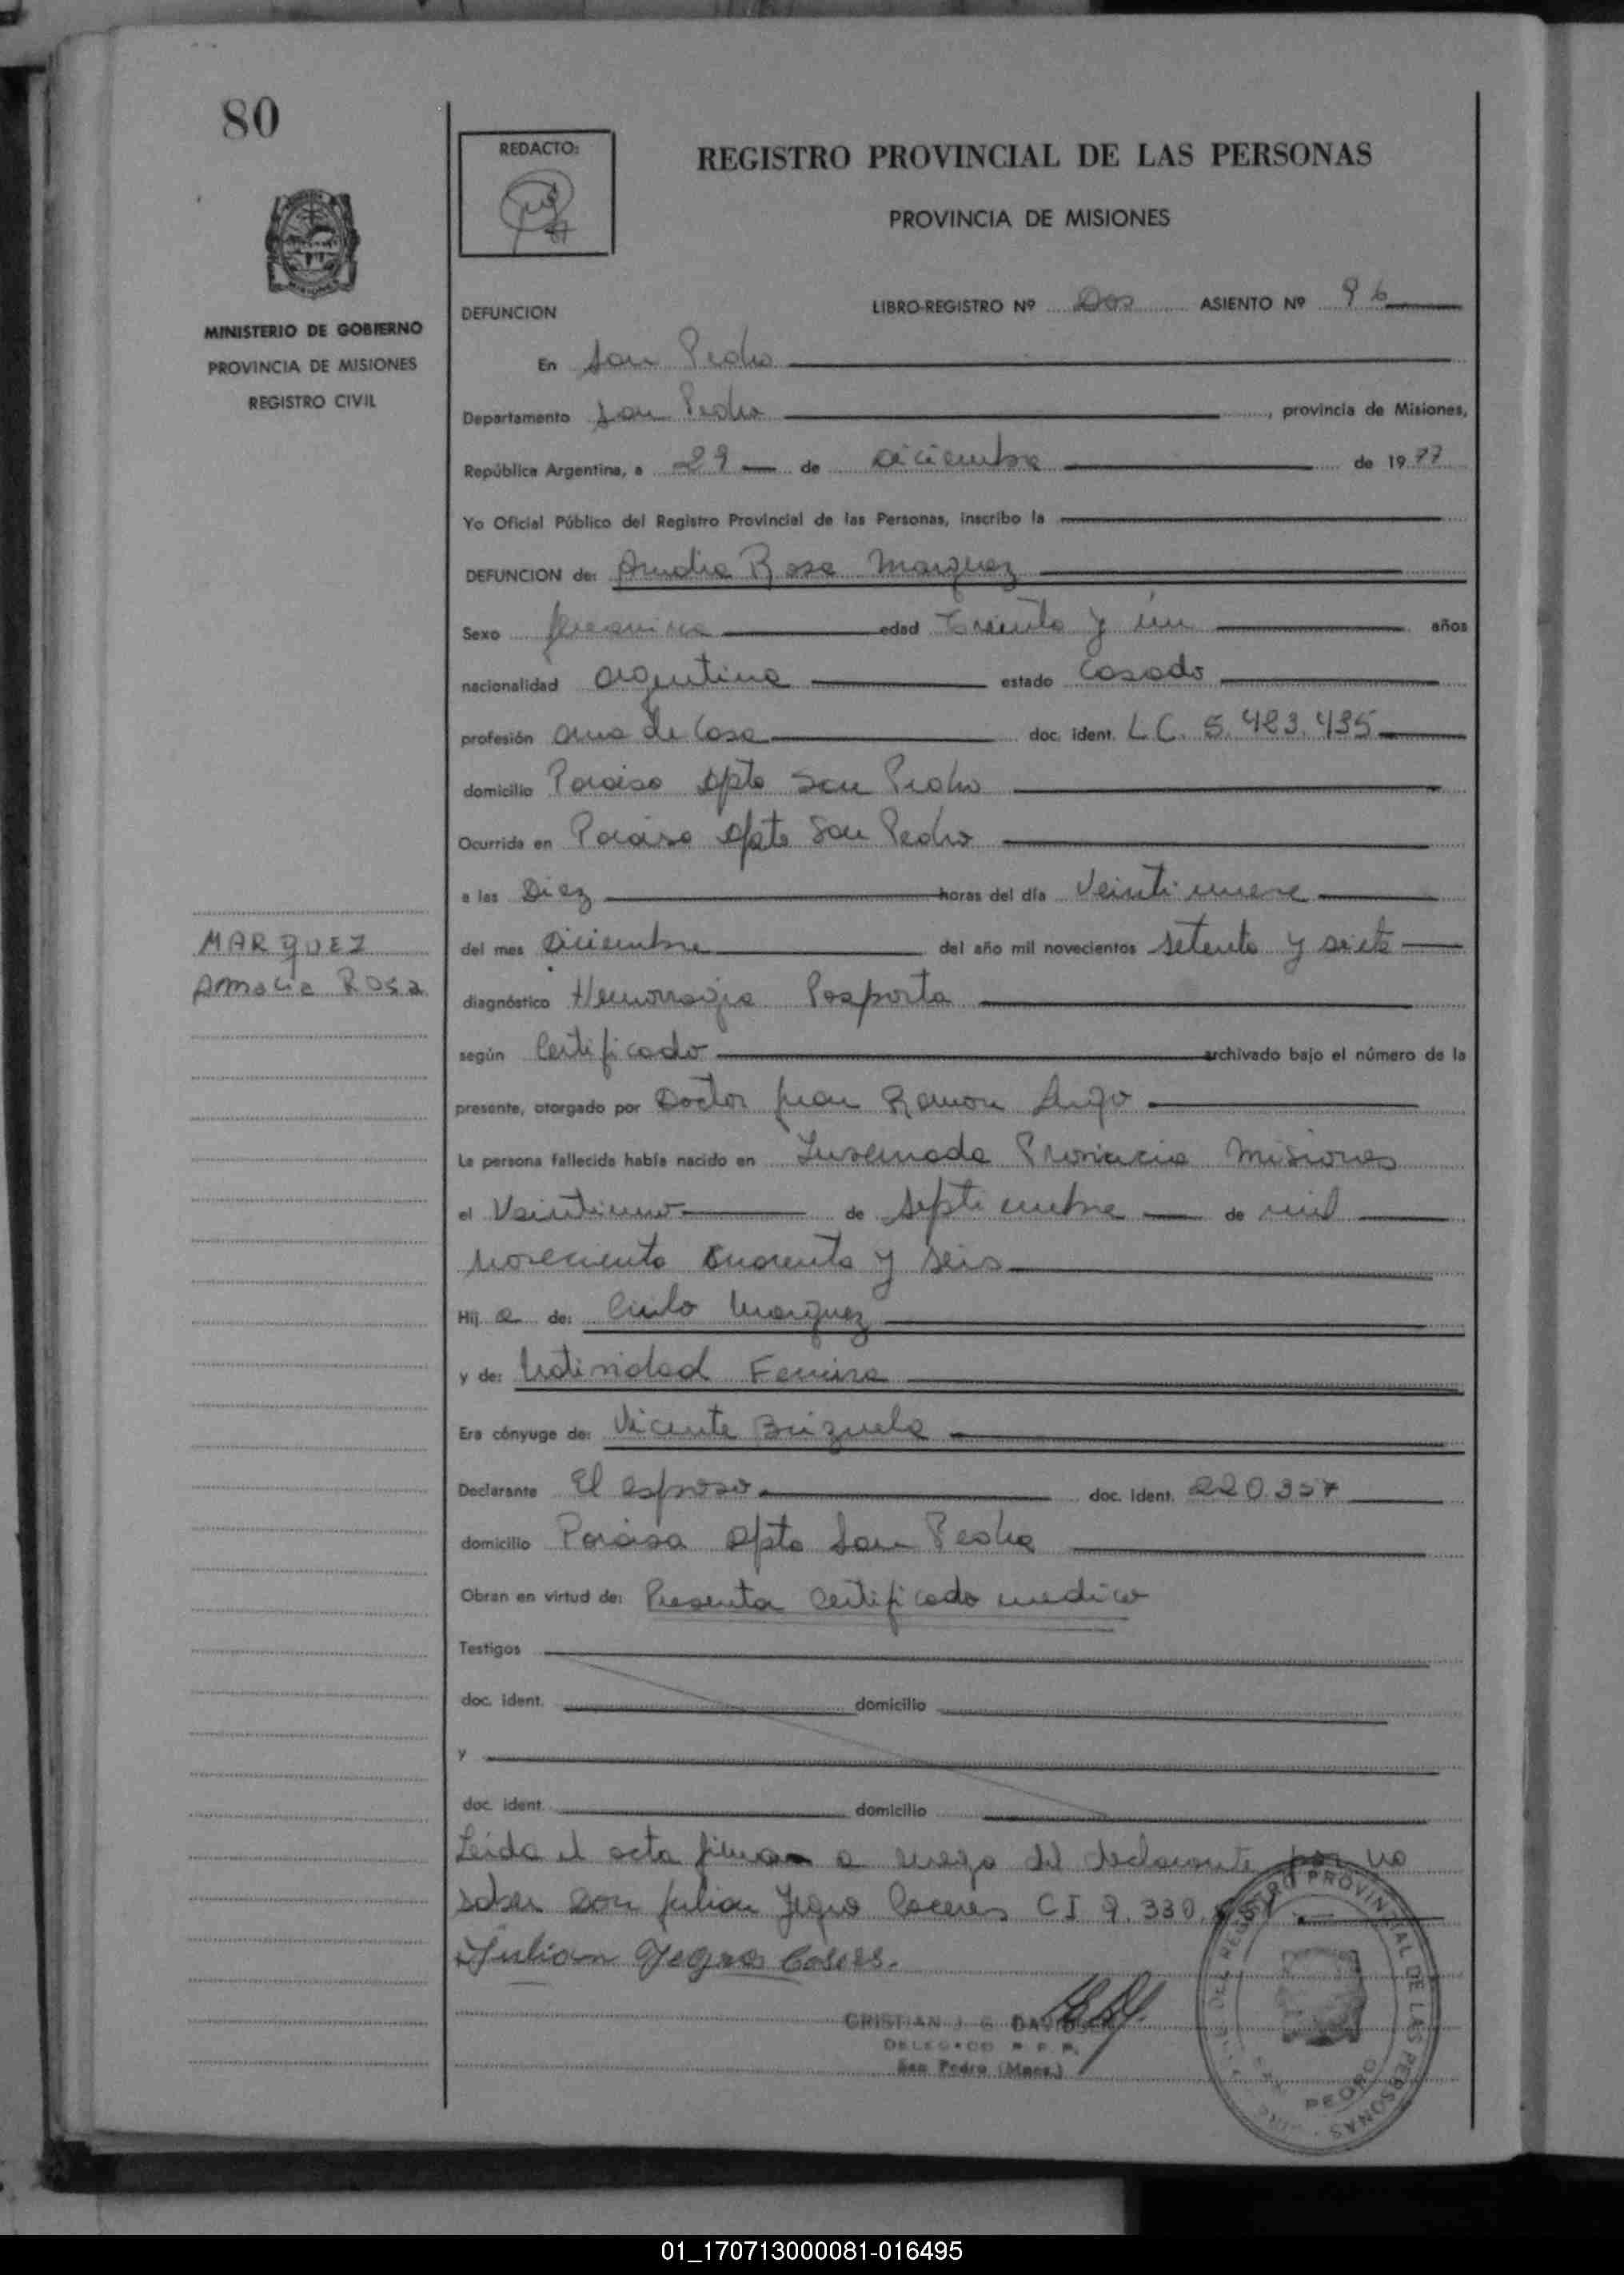 80
REDACTO:
REGISTRO PROVINCIAL DE LAS PERSONAS
PROVINCIA DE MISIONES
MINISTERIO DE GOBIERNO
PROVINCIA DE MISIONES
REGISTRO CIVIL
DEFUNCION
LIBRO-REGISTRO Nº Dos ASIENTO Nº 96
En San Pedro
Departamento San Pedro, provincia de Misiones,
República Argentina, a 29 de diciembre de 1977
Yo Oficial Público del Registro Provincial de las Personas, inscribo la
DEFUNCION de: Amalia Rosa Marquez
Sexo femenino edad Treinta y un años
nacionalidad argentina estado Casada
profesión ama de Casa doc. ident. LC. 5.483.435
domicilio Paraiso Dpto San Pedro
Ocurrida en Paraiso Dpto San Pedro
a las Diez horas del día Veintinueve
MARQUEZ
Amalia Rosa
del mes Diciembre del año mil novecientos setenta y siete
diagnóstico Hemorragia Posparto
según Certificado archivado bajo el número de la
presente, otorgado por Doctor Juan Ramon
La persona fallecida había nacido en Provincia Misiones
el Veintiuno de Septiembre de mil
novecientos cuarenta y seis
Hij a de: Marquez
y de: Natividad Ferreira
Era cónyuge de: Vicente Brizuela
Declarante El esposo doc. ident. 220.357
domicilio Paraiso Dpto San Pedro
Obran en virtud de: Presenta Certificado medico
Testigos
doc. ident. domicilio
y
doc. ident. domicilio
Leida el acta firma a ruego del declarante por no
saber Don Julian Yegro Caceres CI 9.330.
Julian Yegros Caseres.
CRISTIAN J. G. DAVIDSEN
DELEGADO R. P. P.
San Pedro (Mnes.)
REGISTRO PROVINCIAL DE LAS PERSONAS
PEDRO
01_170713000081-016495